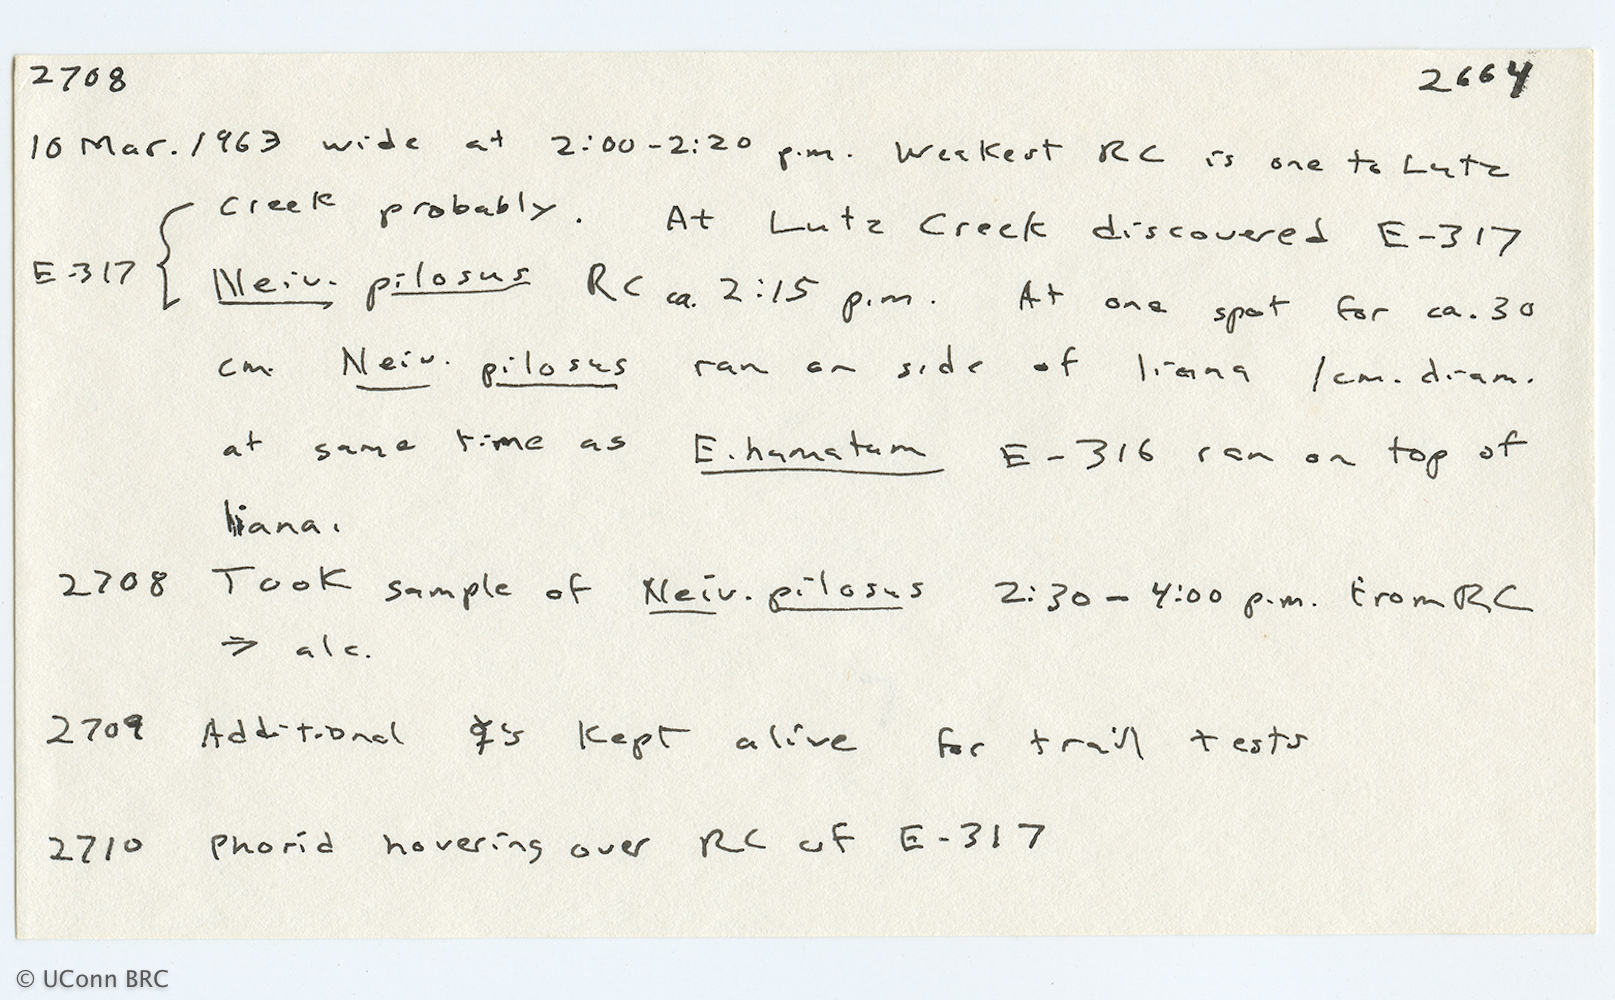 2708 2664
10 Mar. 1963 wide at 2:00-2:20 p.m. Weakest RC is one to Lutz
Creek probably. At Lutz Creek discovered E-317
E-317 { Neiv. pilosus RC ca. 2:15 p.m. At one spot for ca. 30
cm. Neiv. pilosus ran on side of liana 1cm. diam.
at same time as E. hamatum E-316 ran on top of
liana.
2708 Took sample of Neiv. pilosus 2:30 - 4:00 p.m. from RC
⇒ alc.
2709 Additional ☿'s kept alive for trail tests
2710 Phorid hovering over RC of E-317
© UConn BRC